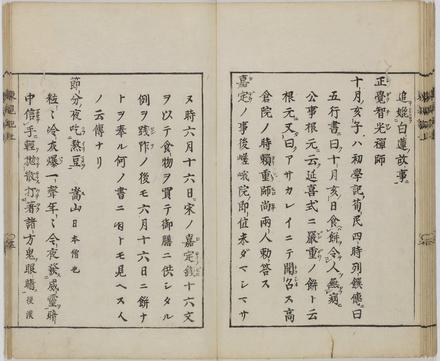 追蠟白蓮故事
正覺智光禪師
十月亥子ハ初學記荀民四時列饌傳曰
五行書曰十月亥日食餅令人無病
公事根元云延喜式ニ嚴重ノ餅ト云
根元又曰アサカレイニテ聞召ス高
倉院ノ時頼重師尚兩人勅荅ス
嘉定ノ事後嵯峨院即位未タマシマサ
ヌ時六月十六日宋ノ嘉定錢十六文
ヲ以テ食物ヲ買テ御膳ニ供シタル
例ヲ践阼ノ後モ六月十六日ニ餅ナ
トヲ奉ル何ノ書ニ出トモ見ヘス人
ノ云傳ナリ
節分夜吃熬豆 嵩山 日本僧也
粒々冷夜爆一聲年々令夜發威靈暗
中信手輕抛散打著諸方鬼眼睛 後漢